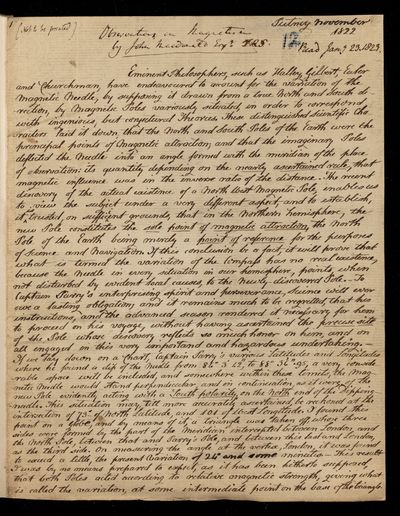 (Not to be printed)
Putney November
1822
Observations on Magnetism
by John Macdonald Esqr. F.R.S.
12
Read Jany 23. 1823.
Eminent Philosophers, such as Halley, Gilbert, Euler
and Churchman, have endeavoured to account for the variation of the
Magnetic Needle, by supposing it drawn from a true North and South di-
rection, by Magnetic Poles variously situated, in order to correspond
with ingenious, but conjectured Theories. These distinguished scientific cha-
racters laid it down, that the North and South Poles of the Earth were the
principal points of Magnetic attraction, and that the imaginary Poles
deflected the Needle into an angle formed with the meridian of the place
of observation: its quantity, depending on the nearly ascertained rule, that
magnetic influence was in the inverse ratio of the distance. The recent
discovery of the actual existence of a North West Magnetic Pole, enables us
to view the subject under a very different aspect, and to establish,
it trusted, on sufficient grounds, that in the Northern hemisphere, the
new Pole constitutes the sole point of magnetic attraction, the North
Pole of the Earth being merely a point of reference for the purposes
of Science and Navigation. If this conclusion be a fact, it will prove that
what is termed the variation of the Compass has no real existence,
because the Needle in every situation in our hemisphere, points, when
not disturbed by evident local causes, to the newly discovered Pole. To
Captain Parry's enterprising spirit and perseverance, Science will ever
owe a lasting obligation; and it remains much to be regretted, that his
instructions, and the advanced season rendered it necessary for him
to proceed on his voyage, without having ascertained the precise site
of the Pole whose discovery reflected so much honor on him, and on
all engaged on this very important and hazardous undertaking.
If we lay down on a Chart, Captain Parry's various Latitudes and Longitudes
where he found a dip of the Needle from
rable space will be included, and somewhere within these limits, the Mag-
netic Needle would stand perpendicular, and in continuation, as it were, of the
new Pole evidently acting with a South polarity, on the North end of the dipping
needle. This situation may, till more accurately ascertained, be reckoned at the
intersection of 75° of North Latitude, and 101 of West Longitude. I found this
point on a globe, and by means of it, a triangle was taken off, whose three
sides were formed by the part of the Meridian intercepted between London, and
the North Pole, between that and Parry's Pole, and between this last and London,
as the third side. On measuring the angle at the vertex London, it was found
to exceed a little, the present Variation of 24° and some minutes. This result
I was by no means prepared to expect, as it has been hitherto supposed,
that both Poles acted according to relative magnetic strength, giving what
is called the variation, at some intermediate point on the base of the triangle.